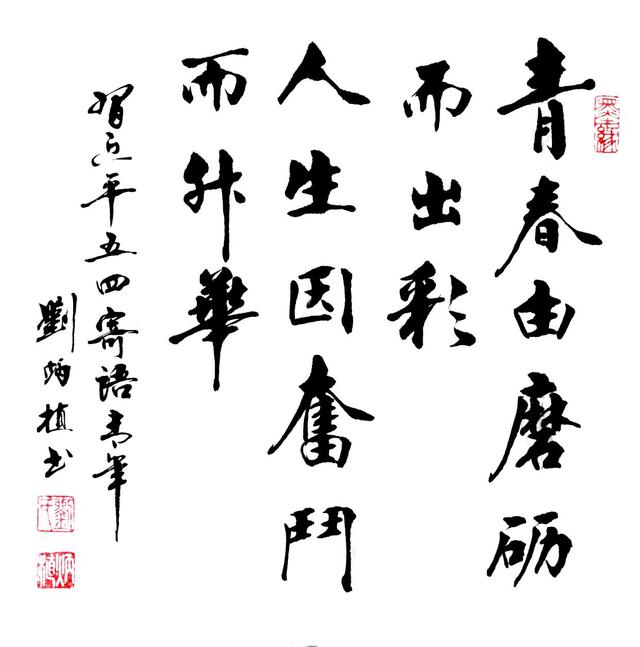 青春由磨砺
而出彩
人生因奮鬥
而升華
習近平五四寄語青年
劉炳植书